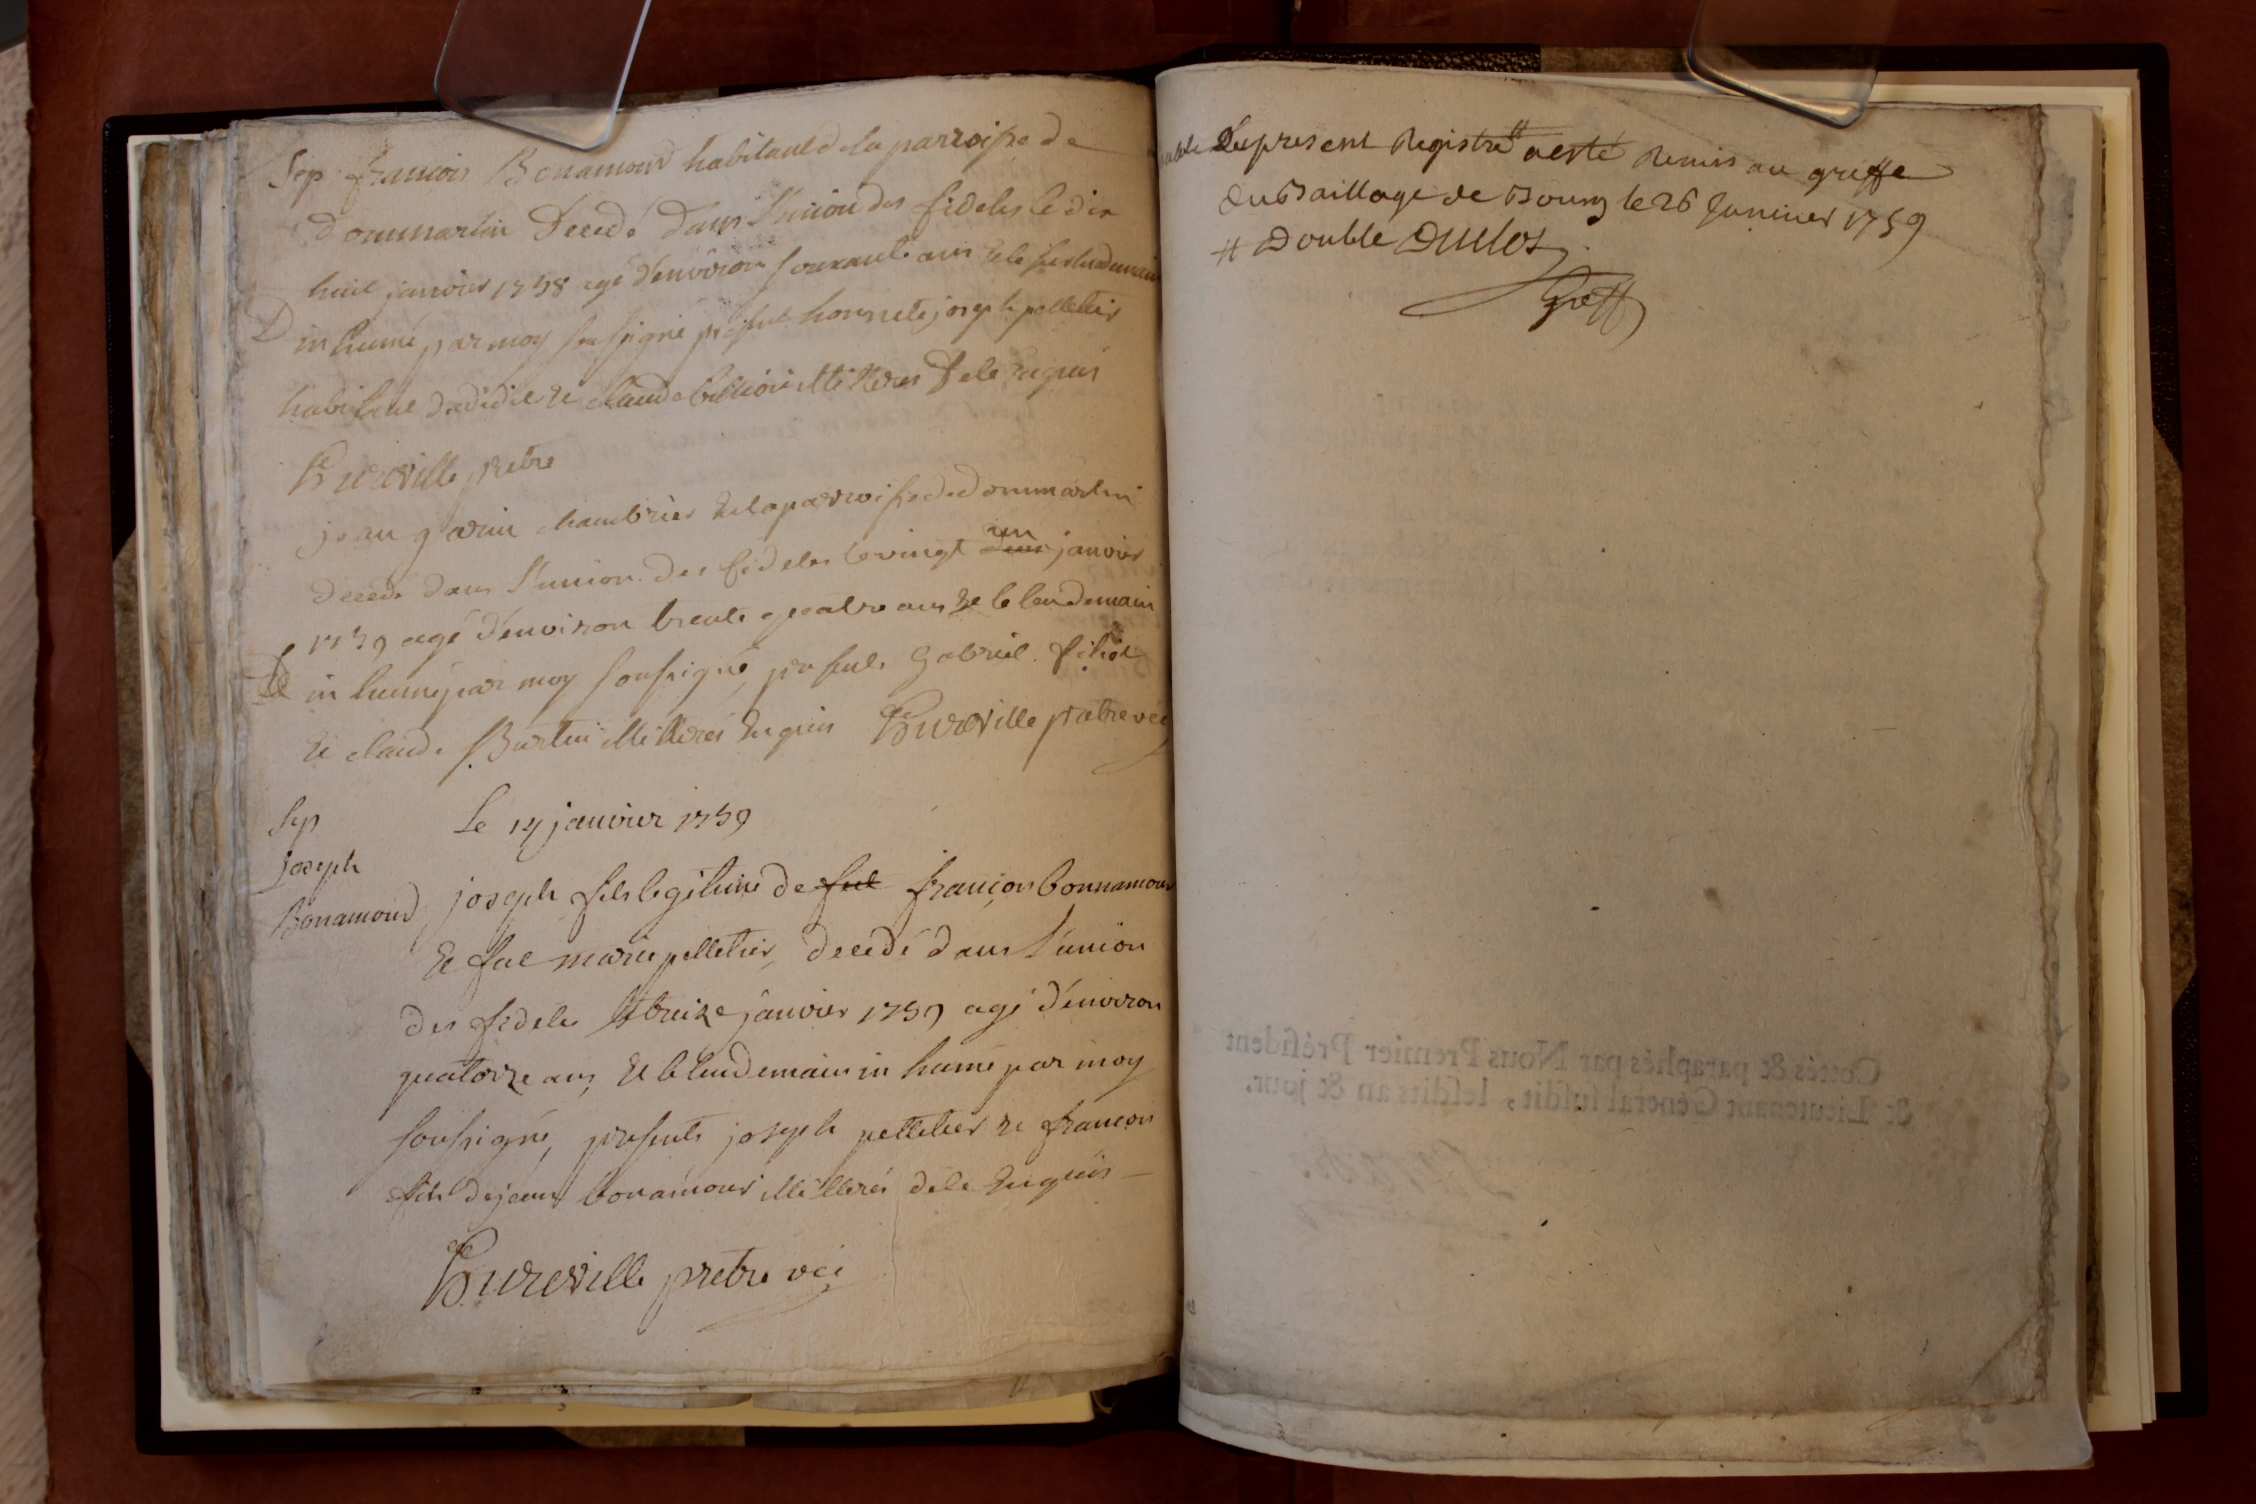 Sep françois Bonamour habitant de la parroisse de
dommartin decedé dans l'union des fideles le dix
huit janvier 1758 agé d'environ soixante ans et le surlendemain
inhumé par moy soussigné presents honnete joseph pelletier
habitant et claude illitterés de le enquis
Bureville pretre
jean garin chambrier de la parroisse de dommartin
decedé dans l'union des fideles le vingt un janvier
1759 agé d'environ trente quatre ans et le lendemain
inhumé par moy soussigné, presents Gabriel
et claude Burtin illitterés enquis Bureville pretre vic
Sep
Joseph
Bonamour
Le 14 janvier 1759
joseph fils legitime de françois bonnamour
et fue marie pelletier, decedé dans l'union
des fideles le treize janvier 1759 agé d'environ
quatorze ans, et le lendemain inhumé par moy
soussigné, presents joseph pelletier et françois
fils de jean bonamour illitterés de le enquis
Bureville pretre vic
Le present Registre # a esté Remis au greffe
du Baillage de Bourg le 26 Janvier 1759
# Double
Greff
Cottés & paraphés par Nous Premier Président
& Lieutenant Général susdit, lesdits an & jour.